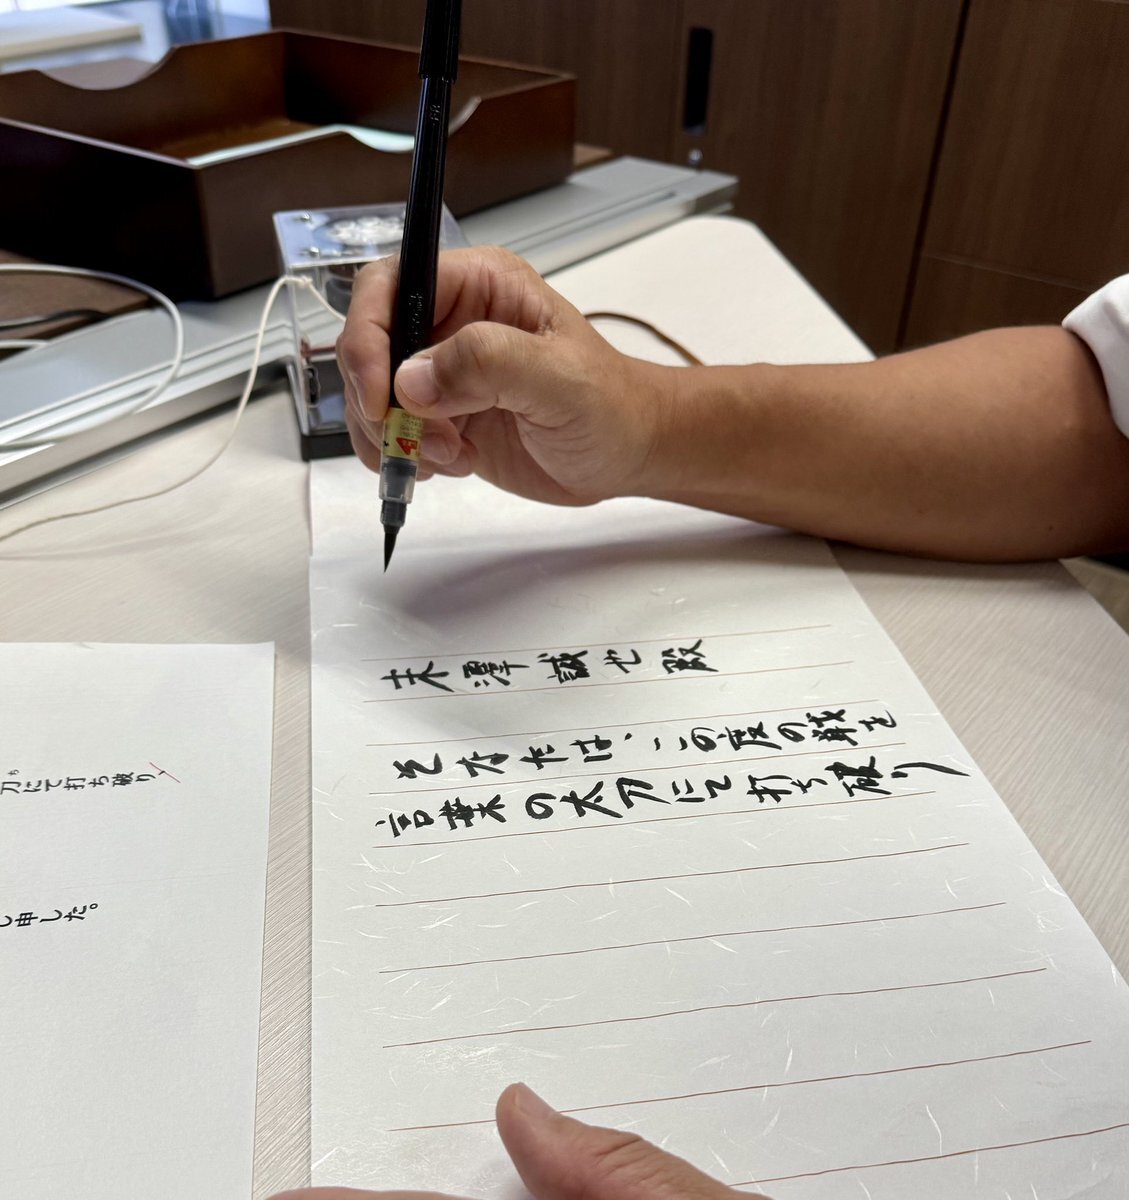 末澤誠也殿
そなたは、この度の戦を
言葉の太刀にて打ち破り
刀にて打ち破り、
し申した。